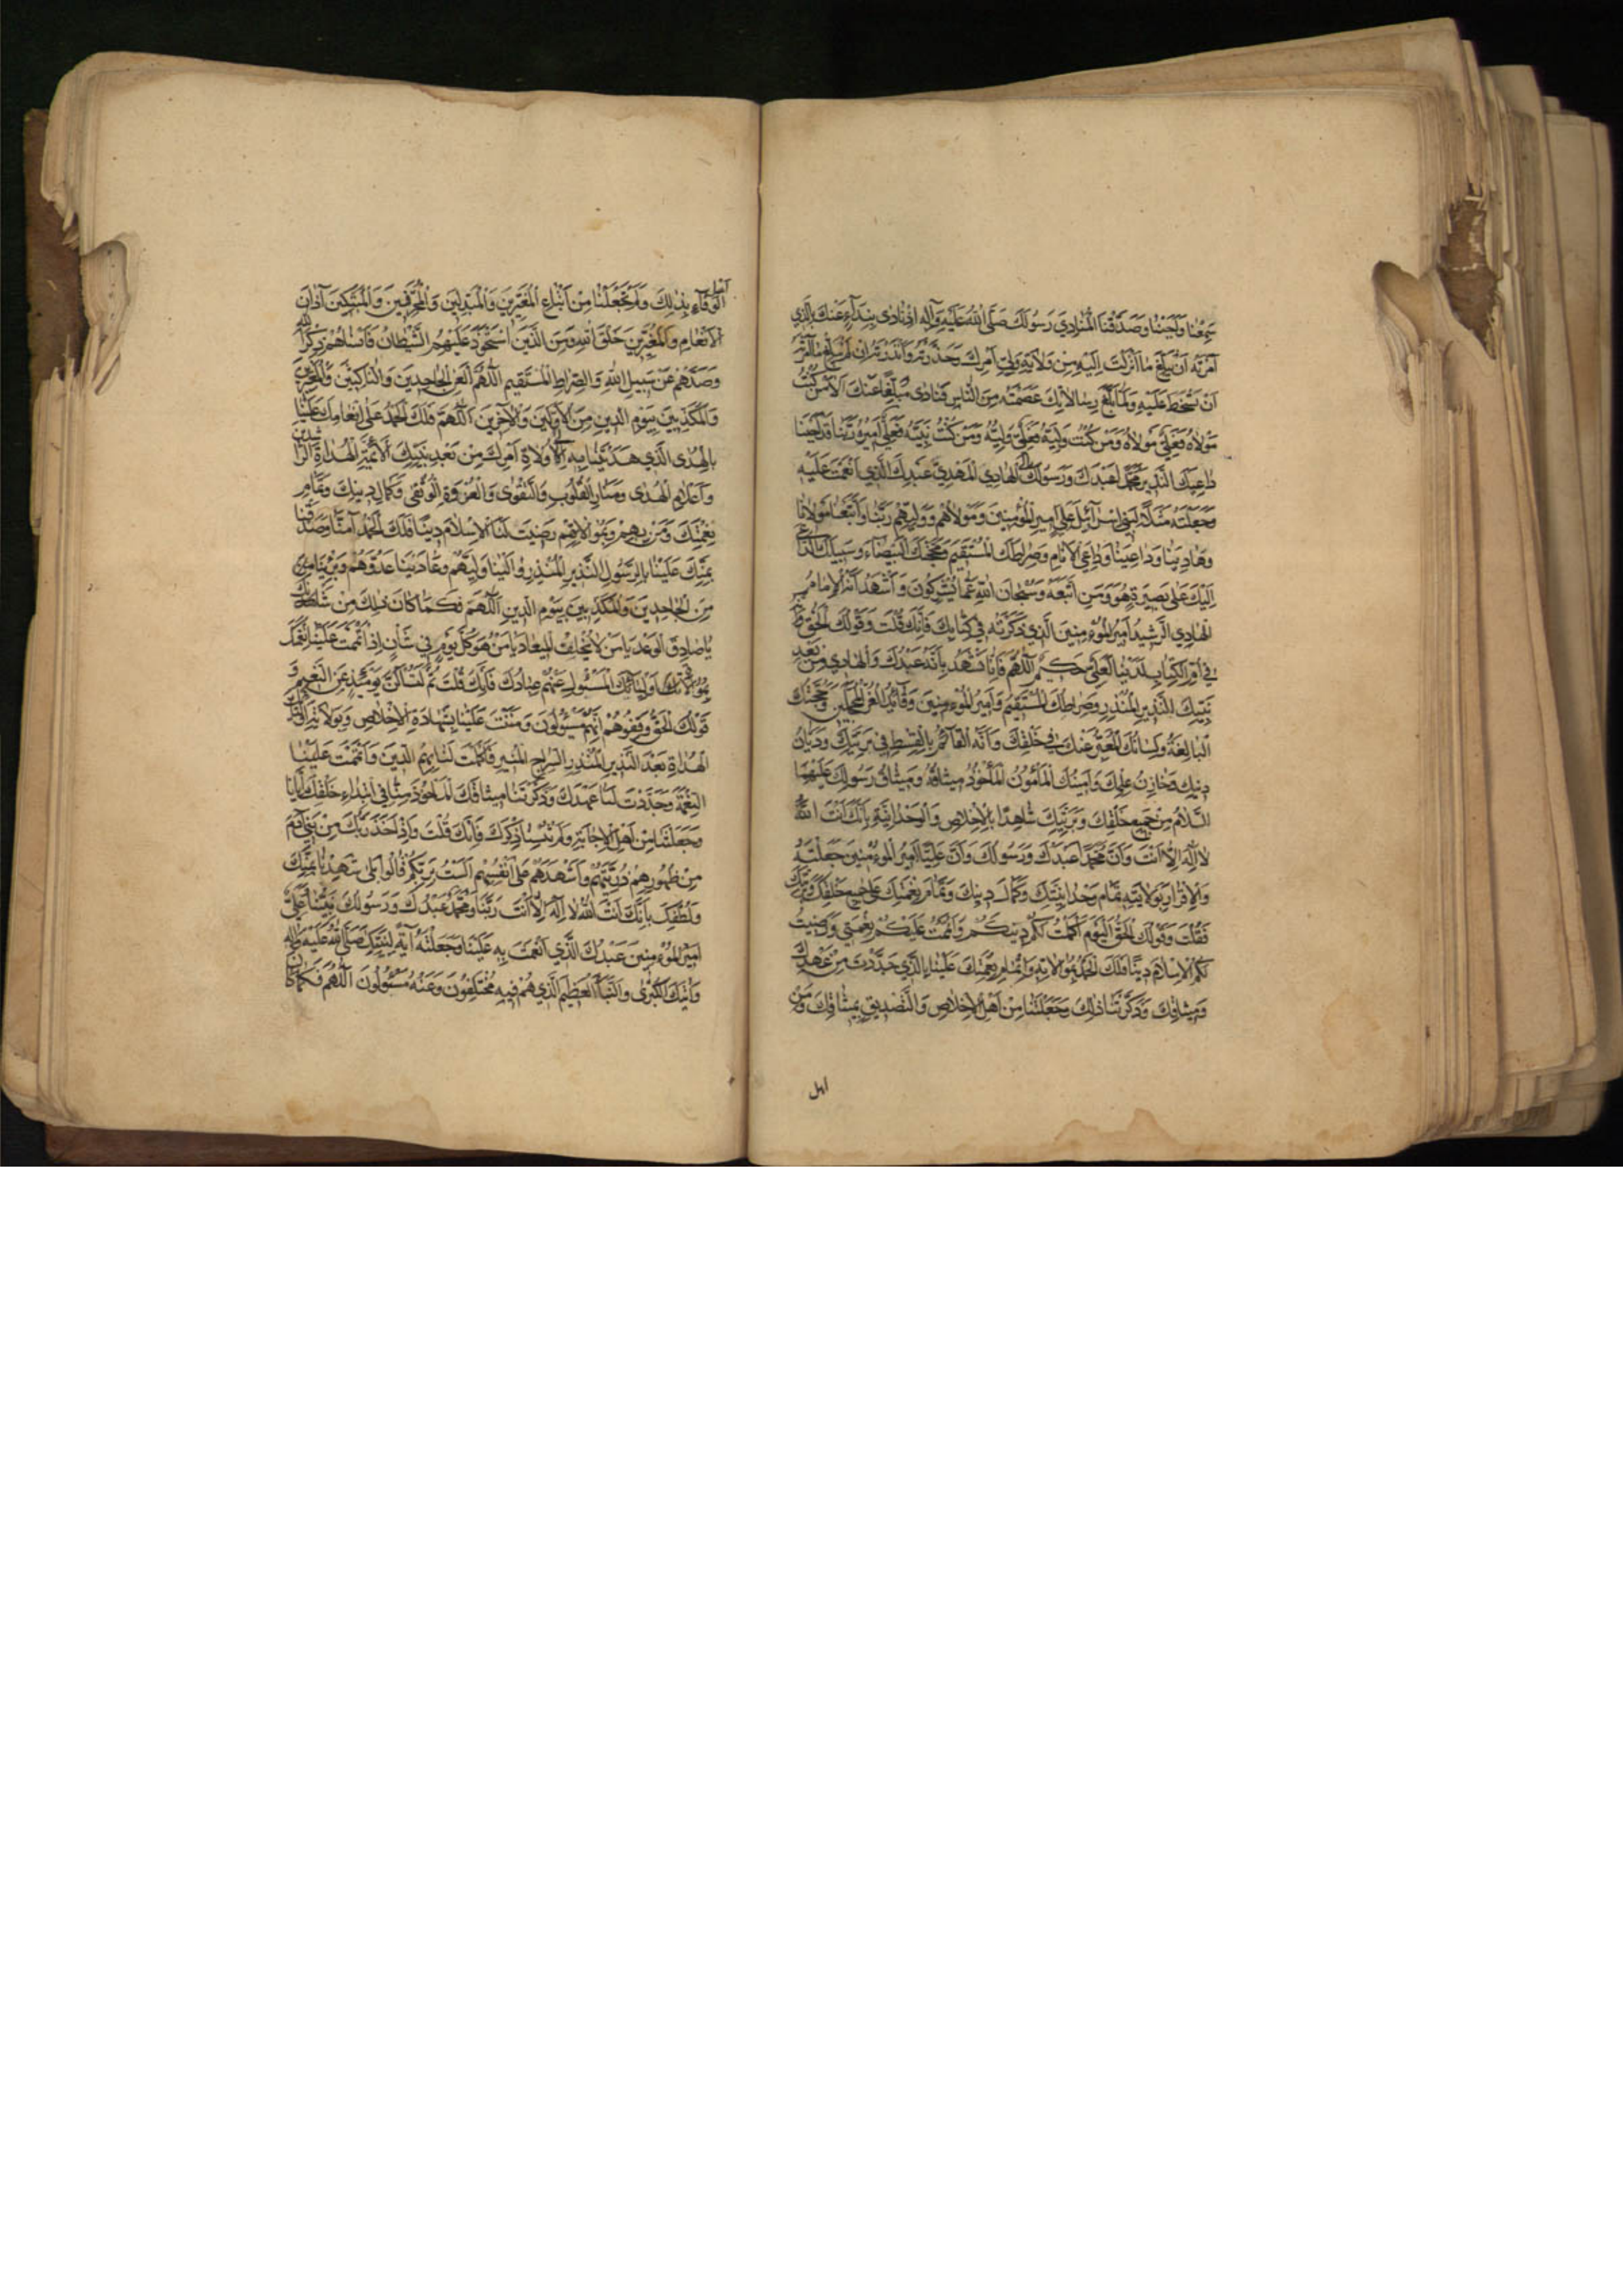 سَمِعْنا وَاَجَبْنا وَصَدَّقْنَا الْمُنادِيَ رَسُولَكَ صَلَّى اللهُ عَلَيْهِ وَآلِهِ اِذْ نادى بِنِدآءٍ عَنْكَ بِالَّذي
اَمَرْتَهُ اَنْ يُبَلِّغَ ما اَنْزَلْتَ اِلَيْهِ مِنْ وِلايَةِ وَلِيِّ اَمْرِكَ وَحَذَّرْتَهُ وَاَنْذَرْتَهُ اِنْ لَمْ يُبَلِّغْ ما اَمَرْتَهُ
اَنْ تَسْخَطَ عَلَيْهِ وَلَمّا بَلَّغَ رِسالاتِكَ عَصَمْتَهُ مِنَ النّاسِ فَنادى مُبَلِّغًا عَنْكَ اَلا مَنْ كُنْتُ
مَوْلاهُ فَعَلِيٌّ مَوْلاهُ وَمَنْ كُنْتُ وَلِيَّهُ فَعَلِيٌّ وَلِيُّهُ وَمَنْ كُنْتُ نَبِيَّهُ فَعَلِيٌّ اَميرُهُ رَبَّنا قَدْ اَجَبْنا
داعِيَكَ النَّذيرَ مُحَمَّدًا عَبْدَكَ وَرَسُولَكَ الْهادِيَ الْمَهْدِيَّ عَبْدَكَ الَّذي اَنْعَمْتَ عَلَيْهِ
وَجَعَلْتَهُ مَثَلاً لِبَني اِسْرآئيلَ عَلِيٍّ اَميرِ الْمُؤْمِنينَ وَمَوْلاهُمْ وَوَلِيِّهِمْ رَبَّنا وَاتَّبَعْنا مَوْلانا
وَهادِيَنا وَداعِيَنا وَداعِيَ الْاَنامِ وَصِراطَكَ الْمُسْتَقيمَ وَحُجَّتَكَ الْبَيْضآءَ وَسَبيلَكَ الدّاعِيَ
اِلَيْكَ عَلى بَصيرَةٍ هُوَ وَمَنِ اتَّبَعَهُ وَسُبْحانَ اللهِ عَمّا يُشْرِكُونَ وَاَشْهَدُ اَنَّهُ الْاِمامُ
الْهادِي الرَّشيدُ اَميرُ الْمُؤْمِنينَ الَّذي ذَكَرْتَهُ في كِتابِكَ فَاِنَّكَ قُلْتَ وَقَوْلُكَ الْحَقُّ وَاِنَّهُ
في اُمِّ الْكِتابِ لَدَيْنا لَعَلِيٌّ حَكيمٌ اَللّهُمَّ فَاِنّا نَشْهَدُ بِاَنَّهُ عَبْدُكَ وَالْهادي مِنْ بَعْدِ
نَبِيِّكَ النَّذيرِ الْمُنْذِرِ وَصِراطُكَ الْمُسْتَقيمُ وَاَميرُ الْمُؤْمِنينَ وَقآئِدُ الْغُرِّ الْمُحَجَّلينَ وَحُجَّتُكَ
الْبالِغَةُ وَلِسانُكَ الْمُعَبِّرُ عَنْكَ في خَلْقِكَ وَاَنَّهُ الْقآئِمُ بِالْقِسْطِ في بَرِيَّتِكَ وَدَيّانُ
دينِكَ وَخازِنُ عِلْمِكَ وَاَمينُكَ الْمَأْمُونُ الْمَأْخُوذُ ميثاقُهُ وَميثاقُ رَسُولِكَ عَلَيْهِمَا
السَّلامُ مِنْ جَميعِ خَلْقِكَ وَبَرِيَّتِكَ شاهِدًا بِالْاِخْلاصِ وَالْوَحْدانِيَّةِ بِاَنَّكَ اَنْتَ اللهُ
لا اِلهَ اِلّا اَنْتَ وَاَنَّ مُحَمَّدًا عَبْدُكَ وَرَسُولُكَ وَاَنَّ عَلِيًّا اَميرُ الْمُؤْمِنينَ جَعَلْتَهُ
وَالْاِقْرارَ بِوِلايَتِهِ تَمامَ وَحْدانِيَّتِكَ وَكَمالَ دينِكَ وَتَمامَ نِعْمَتِكَ عَلى جَميعِ خَلْقِكَ وَبَرِيَّتِكَ
فَقُلْتَ وَقَوْلُكَ الْحَقُّ الْيَوْمَ اَكْمَلْتُ لَكُمْ دينَكُمْ وَاَتْمَمْتُ عَلَيْكُمْ نِعْمَتي وَرَضيتُ
لَكُمُ الْاِسْلامَ دينًا فَلَكَ الْحَمْدُ بِمُوالاتِهِ وَاِتْمامِ نِعْمَتِكَ عَلَيْنا بِالَّذي جَدَّدْتَ مِنْ عَهْدِكَ
وَميثاقِكَ وَذَكَّرْتَنا ذلِكَ وَجَعَلْتَنا مِنْ اَهْلِ الْاِخْلاصِ وَالتَّصْديقِ بِميثاقِكَ وَمِنْ
اهل
اَهْلِ
الْوَفآءِ بِذلِكَ وَلَمْ تَجْعَلْنا مِنْ اَتْباعِ الْمُغَيِّرينَ وَالْمُبَدِّلينَ وَالْمُحَرِّفينَ وَالْمُبَتِّكينَ آذانَ
الْاَنْعامِ وَالْمُغَيِّرينَ خَلْقَ اللهِ وَمِنَ الَّذينَ اسْتَحْوَذَ عَلَيْهِمُ الشَّيْطانُ فَاَنْساهُمْ ذِكْرَ اللهِ
وَصَدَّهُمْ عَنْ سَبيلِ اللهِ وَالصِّراطِ الْمُسْتَقيمِ اَللّهُمَّ الْعَنِ الْجاحِدينَ وَالنّاكِثينَ وَالْمُغَيِّرينَ
وَالْمُكَذِّبينَ بِيَوْمِ الدّينِ مِنَ الْاَوَّلينَ وَالْآخِرينَ اَللّهُمَّ فَلَكَ الْحَمْدُ عَلى اِنْعامِكَ عَلَيْنا
بِالْهُدَى الَّذي هَدَيْتَنا بِهِ اِلى وُلاةِ اَمْرِكَ مِنْ بَعْدِ نَبِيِّكَ الْاَئِمَّةِ الْهُداةِ الرّاشِدينَ
وَاَعْلامِ الْهُدى وَمَنارِ الْقُلُوبِ وَالتَّقْوى وَالْعُرْوَةِ الْوُثْقى وَكَمالِ دينِكَ وَتَمامِ
نِعْمَتِكَ وَمَنْ بِهِمْ وَبِمُوالاتِهِمْ رَضيتَ لَنَا الْاِسْلامَ دينًا فَلَكَ الْحَمْدُ آمَنّا وَصَدَّقْنا
بِمَنِّكَ عَلَيْنا بِالرَّسُولِ النَّذيرِ الْمُنْذِرِ وَالَيْنا وَلِيَّهُمْ وَعادَيْنا عَدُوَّهُمْ وَبَرِئْنا
مِنَ الْجاحِدينَ وَالْمُكَذِّبينَ بِيَوْمِ الدّينِ اَللّهُمَّ فَكَما كانَ ذلِكَ مِنْ شَأْنِكَ
يا صادِقَ الْوَعْدِ يا مَنْ لا يُخْلِفُ الْميعادَ يا مَنْ هُوَ كُلَّ يَوْمٍ في شَأْنٍ اِذْ اَتْمَمْتَ عَلَيْنا نِعْمَتَكَ
بِمُوالاةِ اَوْلِيآئِكَ الْمَسْئُولِ عَنْهُمْ عِبادُكَ فَاِنَّكَ قُلْتَ ثُمَّ لَتُسْاَلُنَّ يَوْمَئِذٍ عَنِ النَّعيمِ وَ
قَوْلُكَ الْحَقُّ وَقِفُوهُمْ اِنَّهُمْ مَسْئُولُونَ وَمَنَنْتَ عَلَيْنا بِشَهادَةِ الْاِخْلاصِ وَبِوِلايَةِ اَوْلِيآئِكَ
الْهُداةِ بَعْدَ النَّذيرِ الْمُنْذِرِ السِّراجِ الْمُنيرِ فَاَكْمَلْتَ لَنا بِهِمُ الدّينَ وَاَتْمَمْتَ عَلَيْنَا
النِّعْمَةَ وَجَدَّدْتَ لَنا عَهْدَكَ وَذَكَّرْتَنا ميثاقَكَ الْمَأْخُوذَ مِنّا فِي ابْتِدآءِ خَلْقِكَ اِيّانا
وَجَعَلْتَنا مِنْ اَهْلِ الْاِجابَةِ وَلَمْ تُنْسِنا ذِكْرَكَ فَاِنَّكَ قُلْتَ وَاِذْ اَخَذَ رَبُّكَ مِنْ بَني آدَمَ
مِنْ ظُهُورِهِمْ ذُرِّيَّتَهُمْ وَاَشْهَدَهُمْ عَلى اَنْفُسِهِمْ اَلَسْتُ بِرَبِّكُمْ قالُوا بَلى شَهِدْنا بِمَنِّكَ
وَلُطْفِكَ بِاَنَّكَ اَنْتَ اللهُ لا اِلهَ اِلّا اَنْتَ رَبُّنا وَمُحَمَّدٌ عَبْدُكَ وَرَسُولُكَ نَبِيُّنا وَعَلِيٌّ
اَميرُ الْمُؤْمِنينَ عَبْدُكَ الَّذي اَنْعَمْتَ بِهِ عَلَيْنا وَجَعَلْتَهُ آيَةً لِنَبِيِّكَ صَلَّى اللهُ عَلَيْهِ وَآلِهِ
وَآيَتَكَ الْكُبْرى وَالنَّبَاَ الْعَظيمَ الَّذي هُمْ فيهِ مُخْتَلِفُونَ وَعَنْهُ مَسْئُولُونَ اَللّهُمَّ فَكَما كانَ